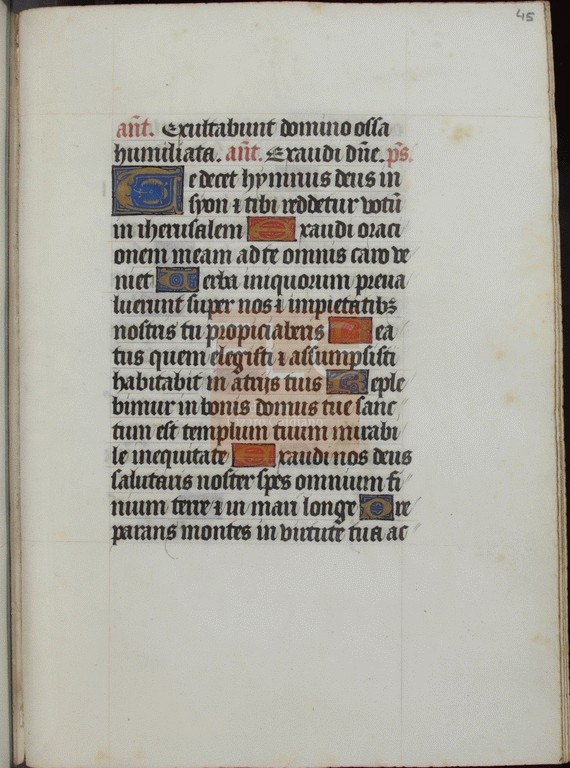 45
añt. Exultabunt domino ossa
humiliata. añt. Exaudi dñe. ps.
Te decet hymnus deus in
syon ⁊ tibi reddetur votũ
in iherusalem Exaudi orati
onem meam ad te omnis caro ve
niet Verba iniquorum preua
luerunt super nos ⁊ impietatibꝫ
nostris tu propiciaberis Bea
tus quem elegisti ⁊ assumpsisti
habitabit in atrijs tuis Reple
bimur in bonis domus tue sanc
tum est templum tuum mirabi
le inequitate Exaudi nos deus
salutaris noster spes omnium fi
nium terre ⁊ in mari longe Pre
parans montes in virtute tua ac